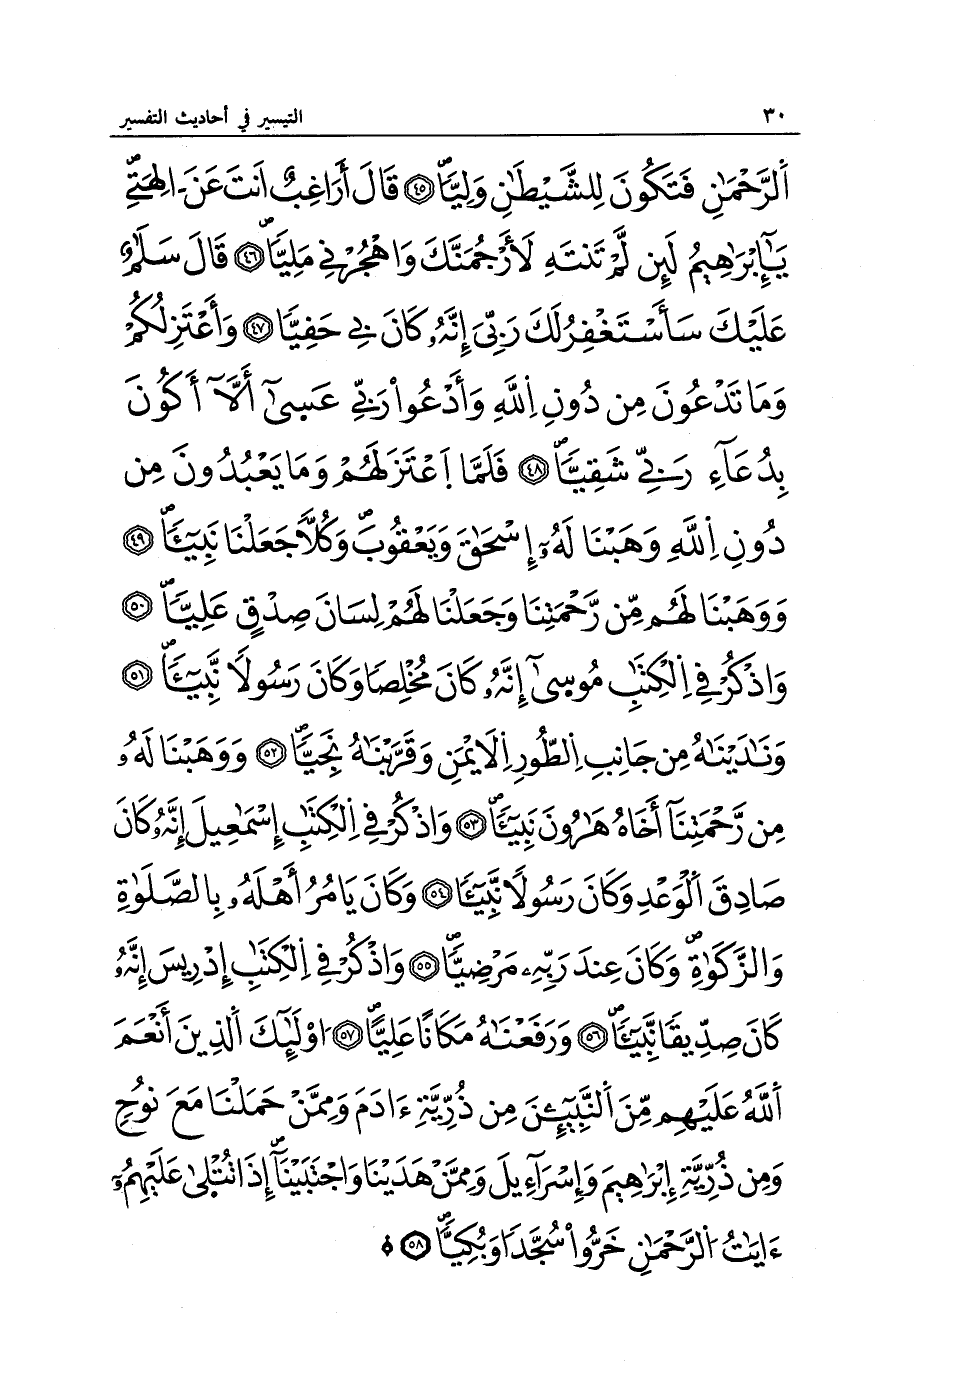 ٣٠ التيسير في أحاديث التفسير
اَ۬لرَّحْمَٰنِ فَتَكُونَ لِلشَّيْطَٰنِ وَلِيّاٗۖ ۝٤٥ قَالَ أَرَاغِبٌ اَنتَ عَنَ اٰلِهَتِے
يَٰٓإِبْرَٰهِيمُ لَئِن لَّمْ تَنتَهِ لَأَرْجُمَنَّكَ وَاهْجُرْنِے مَلِيّاٗۖ ۝٤٦ قَالَ سَلَٰمٌ
عَلَيْكَ سَأَسْتَغْفِرُ لَكَ رَبِّيَ إِنَّهُۥ كَانَ بِے حَفِيّاٗ ۝٤٧ وَأَعْتَزِلُكُمْ
وَمَا تَدْعُونَ مِن دُونِ اِ۬للَّهِ وَأَدْعُواْ رَبِّے عَسَىٰٓ أَلَّآ أَكُونَ
بِدُعَآءِ رَبِّے شَقِيّاٗۖ ۝٤٨ فَلَمَّا اَ۪عْتَزَلَهُمْ وَمَا يَعْبُدُونَ مِن
دُونِ اِ۬للَّهِ وَهَبْنَا لَهُۥٓ إِسْحَٰقَ وَيَعْقُوبَۖ وَكُلّاٗ جَعَلْنَا نَبِيٓـٔاٗۖ ۝٤٩
وَوَهَبْنَا لَهُم مِّن رَّحْمَتِنَا وَجَعَلْنَا لَهُمْ لِسَانَ صِدْقٍ عَلِيّاٗۖ ۝٥٠
وَاذْكُرْ فِے اِ۬لْكِتَٰبِ مُوسَىٰٓ إِنَّهُۥ كَانَ مُخْلِصاٗ وَكَانَ رَسُولاٗ نَّبِيٓـٔاٗۖ ۝٥١
وَنَٰدَيْنَٰهُ مِن جَانِبِ اِ۬لطُّورِ اِ۬لَايْمَنِ وَقَرَّبْنَٰهُ نَجِيّاٗۖ ۝٥٢ وَوَهَبْنَا لَهُۥ
مِن رَّحْمَتِنَآ أَخَاهُ هَٰرُونَ نَبِيٓـٔاٗۖ ۝٥٣ وَاذْكُرْ فِے اِ۬لْكِتَٰبِ إِسْمَٰعِيلَ إِنَّهُۥ كَانَ
صَادِقَ اَ۬لْوَعْدِ وَكَانَ رَسُولاٗ نَّبِيٓـٔاٗ ۝٥٤ وَكَانَ يَامُرُ أَهْلَهُۥ بِالصَّلَوٰةِ
وَالزَّكَوٰةِۖ وَكَانَ عِندَ رَبِّهِۦ مَرْضِيّاٗۖ ۝٥٥ وَاذْكُرْ فِے اِ۬لْكِتَٰبِ إِدْرِيسَ إِنَّهُۥ
كَانَ صِدِّيقاٗ نَّبِيٓـٔاٗۖ ۝٥٦ وَرَفَعْنَٰهُ مَكَاناً عَلِيّاًۖ ۝٥٧ ا۟وْلَٰٓئِكَ اَ۬لذِينَ أَنْعَمَ
اَ۬للَّهُ عَلَيْهِم مِّنَ اَ۬لنَّبِيٓـِٕينَ مِن ذُرِّيَّةِ ءَادَمَ وَمِمَّنْ حَمَلْنَا مَعَ نُوحٍ
وَمِن ذُرِّيَّةِ إِبْرَٰهِيمَ وَإِسْرَآءِيلَ وَمِمَّنْ هَدَيْنَا وَاجْتَبَيْنَآۖ إِذَا تُتْلَىٰ عَلَيْهِمُۥٓ
ءَايَٰتُ اُ۬لرَّحْمَٰنِ خَرُّواْ سُجَّداٗ وَبُكِيّاٗۖ ۝٥٨